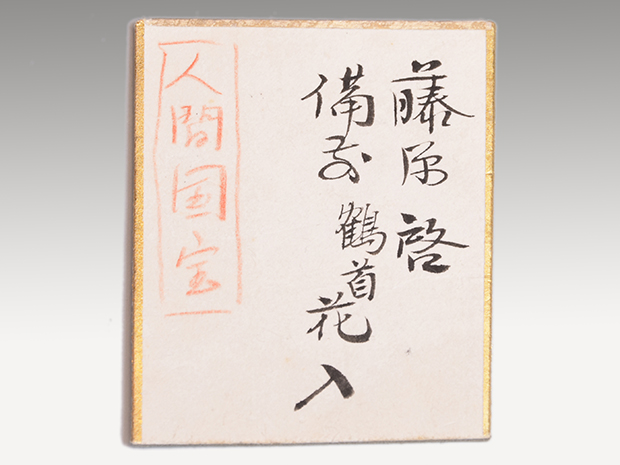 藤原啓
備前鶴首花入
人間国宝